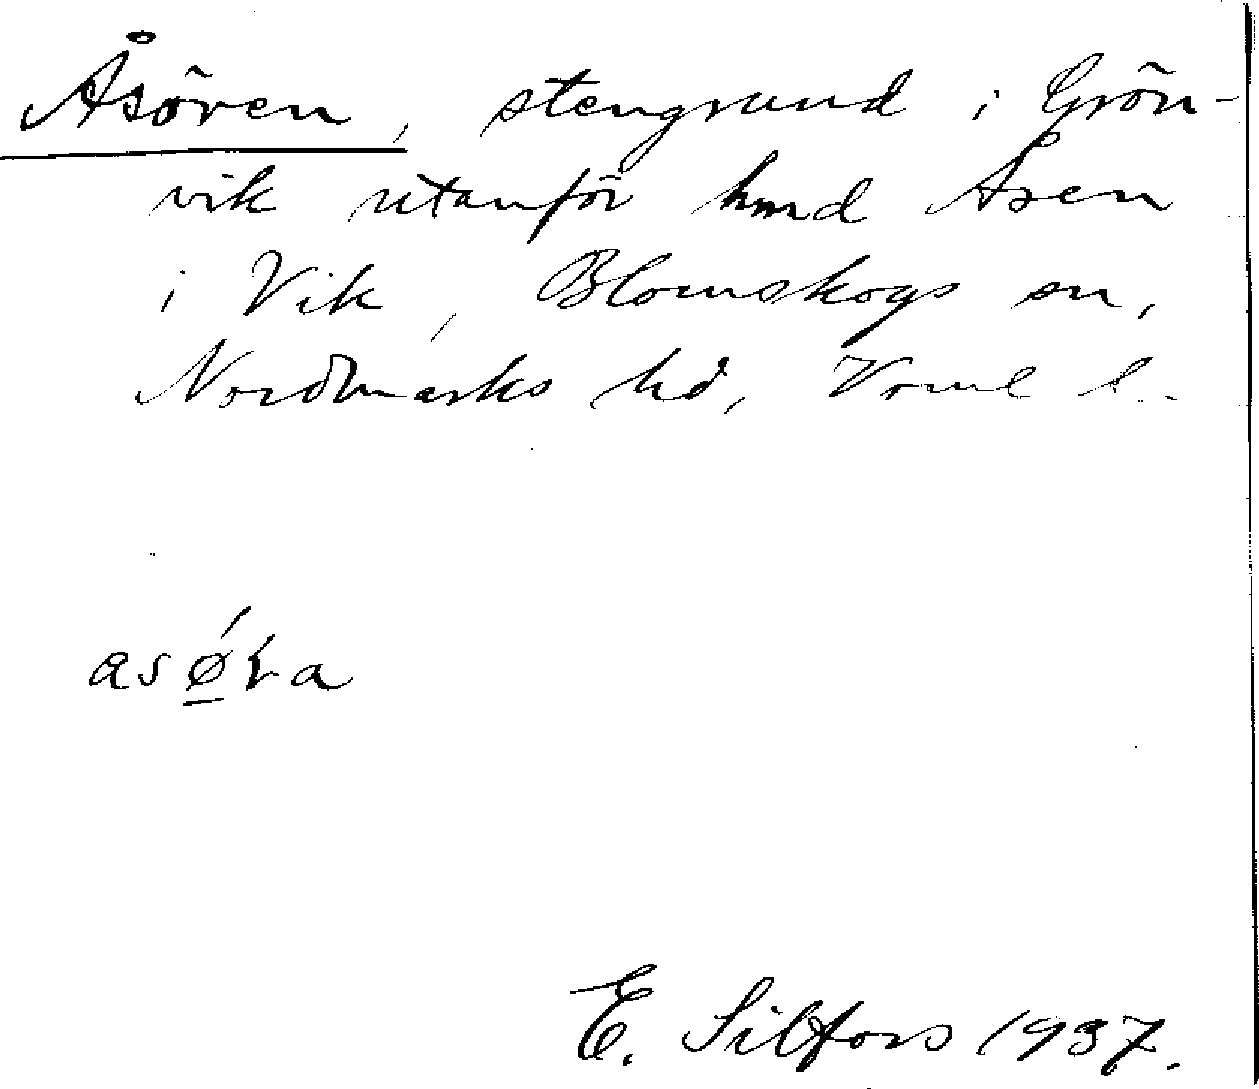 Åsören, stengrund i Grön-
vik utanför hmd Åsen
i Vik, Blomskogs sn,
Nordmarks hd, Vrml l.
E. Silfors 1937.